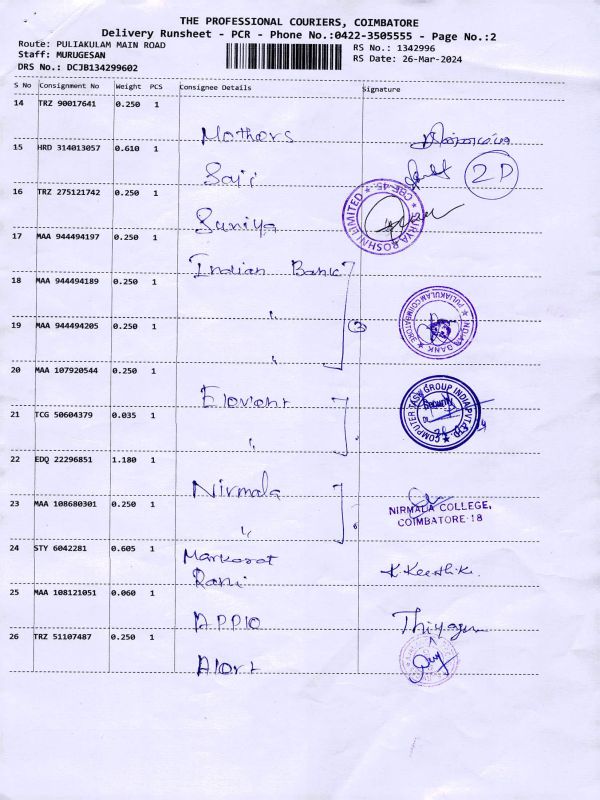 THE PROFESSIONAL COURIERS, COIMBATORE
Delivery Runsheet - PCR - Phone No.:0422-3505555 - Page No.:2
Route: PULIAKULAM MAIN ROAD
RS No.: 1342996
Staff: MURUGESAN
RS Date: 26-Mar-2024
DRS No.: DCJB134299602
S No Consignment No Weight PCS Consignee Details Signature
14 TRZ 90017641 0.250 1
Mothers
15 HRD 314013057 0.610 1
Saji
2D
16 TRZ 275121742 0.250 1
Suniya
SURYA ROSHNI LIMITED ★ CBE-45 ★
17 MAA 944494197 0.250 1
Indian Bank
18 MAA 944494189 0.250 1
"
3
INDIAN BANK ★ PULIAKULAM COIMBATORE ★
19 MAA 944494205 0.250 1
"
20 MAA 107920544 0.250 1
Elovient
COMPUTER TASK GROUP INDIA PVT LTD ★
Security
21 TCG 50604379 0.035 1
"
22 EDQ 22296851 1.180 1
Nirmala
NIRMALA COLLEGE,
COIMBATORE-18
23 MAA 108680301 0.250 1
"
24 STY 6042281 0.605 1
Markarat
Rani
K Keerthika.
25 MAA 108121051 0.060 1
APPIO
Thiyagu
26 TRZ 51107487 0.250 1
Alert